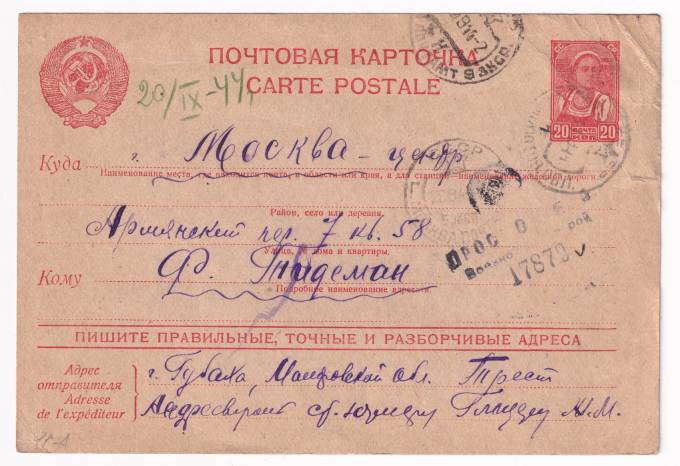 ПОЧТОВАЯ КАРТОЧКА
CARTE POSTALE
20/IX-44
20 ПОЧТА 20
Куда г. Москва - центр
Наименование места, где находится почта, и области или края, а для станции - наименование железной дороги.
Район, село или деревня.
Армянский пер. 7 кв. 58
Улица, № дома и квартиры.
Кому Ф. Тидеман
Подробное наименование адресата.
17879
ПИШИТЕ ПРАВИЛЬНЫЕ, ТОЧНЫЕ И РАЗБОРЧИВЫЕ АДРЕСА
Адрес отправителя
Adresse de l'expéditeur
г. Губаха, Молотовской обл. Трест